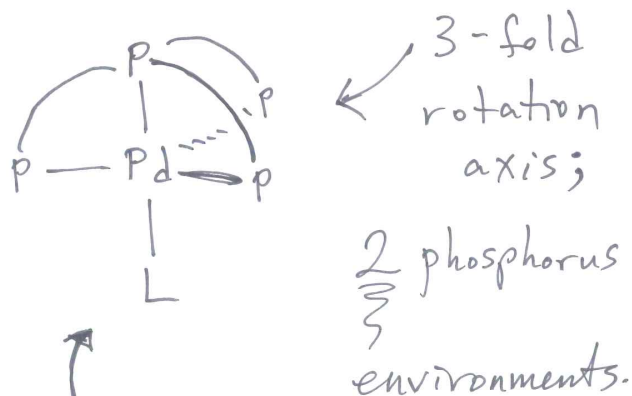 P
P
P — Pd — P
L
3-fold
rotation
axis;
2 phosphorus
environments.